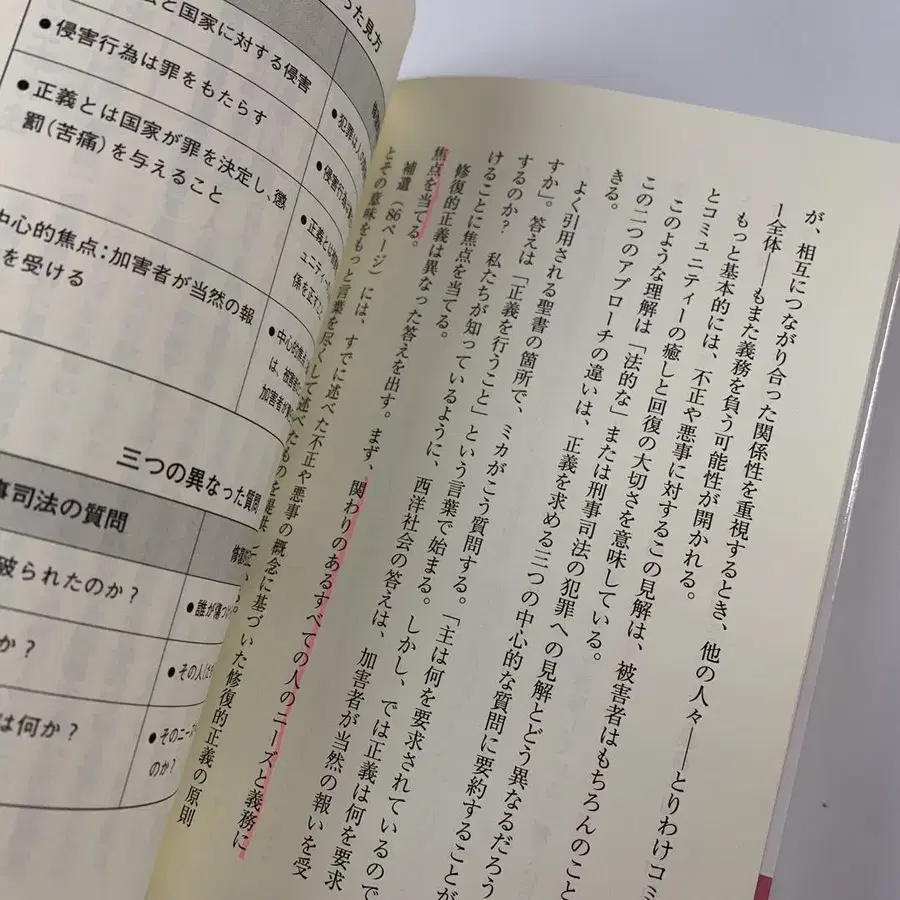 った見方
と国家に対する侵害
●侵害行為は罪をもたらす
●正義とは国家が罪を決定し、懲
罰(苦痛)を与えること
中心的焦点：加害者が当然の報
を受ける
●犯罪は人
●侵害行為
●正義とは
ュニティー
係を正すこ
●中心的焦点
は、被害者
加害者が
三つの異なった質問
事司法の質問
破られたのか？
●誰が傷つ
か？
●その人
は何か？
●そのニー
のか？
が、相互につながり合った関係性を重視するとき、他の人々――とりわけコミ
ー全体――もまた義務を負う可能性が開かれる。
もっと基本的には、不正や悪事に対するこの見解は、被害者はもちろんのこと
とコミュニティーの癒しと回復の大切さを意味している。
このような理解は「法的な」または刑事司法の犯罪への見解とどう異なるだろう
この二つのアプローチの違いは、正義を求める三つの中心的な質問に要約することが
きる。
よく引用される聖書の箇所で、ミカがこう質問する。「主は何を要求されているので
すか」。答えは「正義を行うこと」という言葉で始まる。しかし、では正義は何を要求
するのか？ 私たちが知っているように、西洋社会の答えは、加害者が当然の報いを受
けることに焦点を当てる。
修復的正義は異なった答えを出す。まず、関わりのあるすべての人のニーズと義務に
焦点を当てる。
補遺（86ページ）には、すでに述べた不正や悪事の概念に基づいた修復的正義の原則
とその意味をもっと言葉を尽くして述べたものを提供